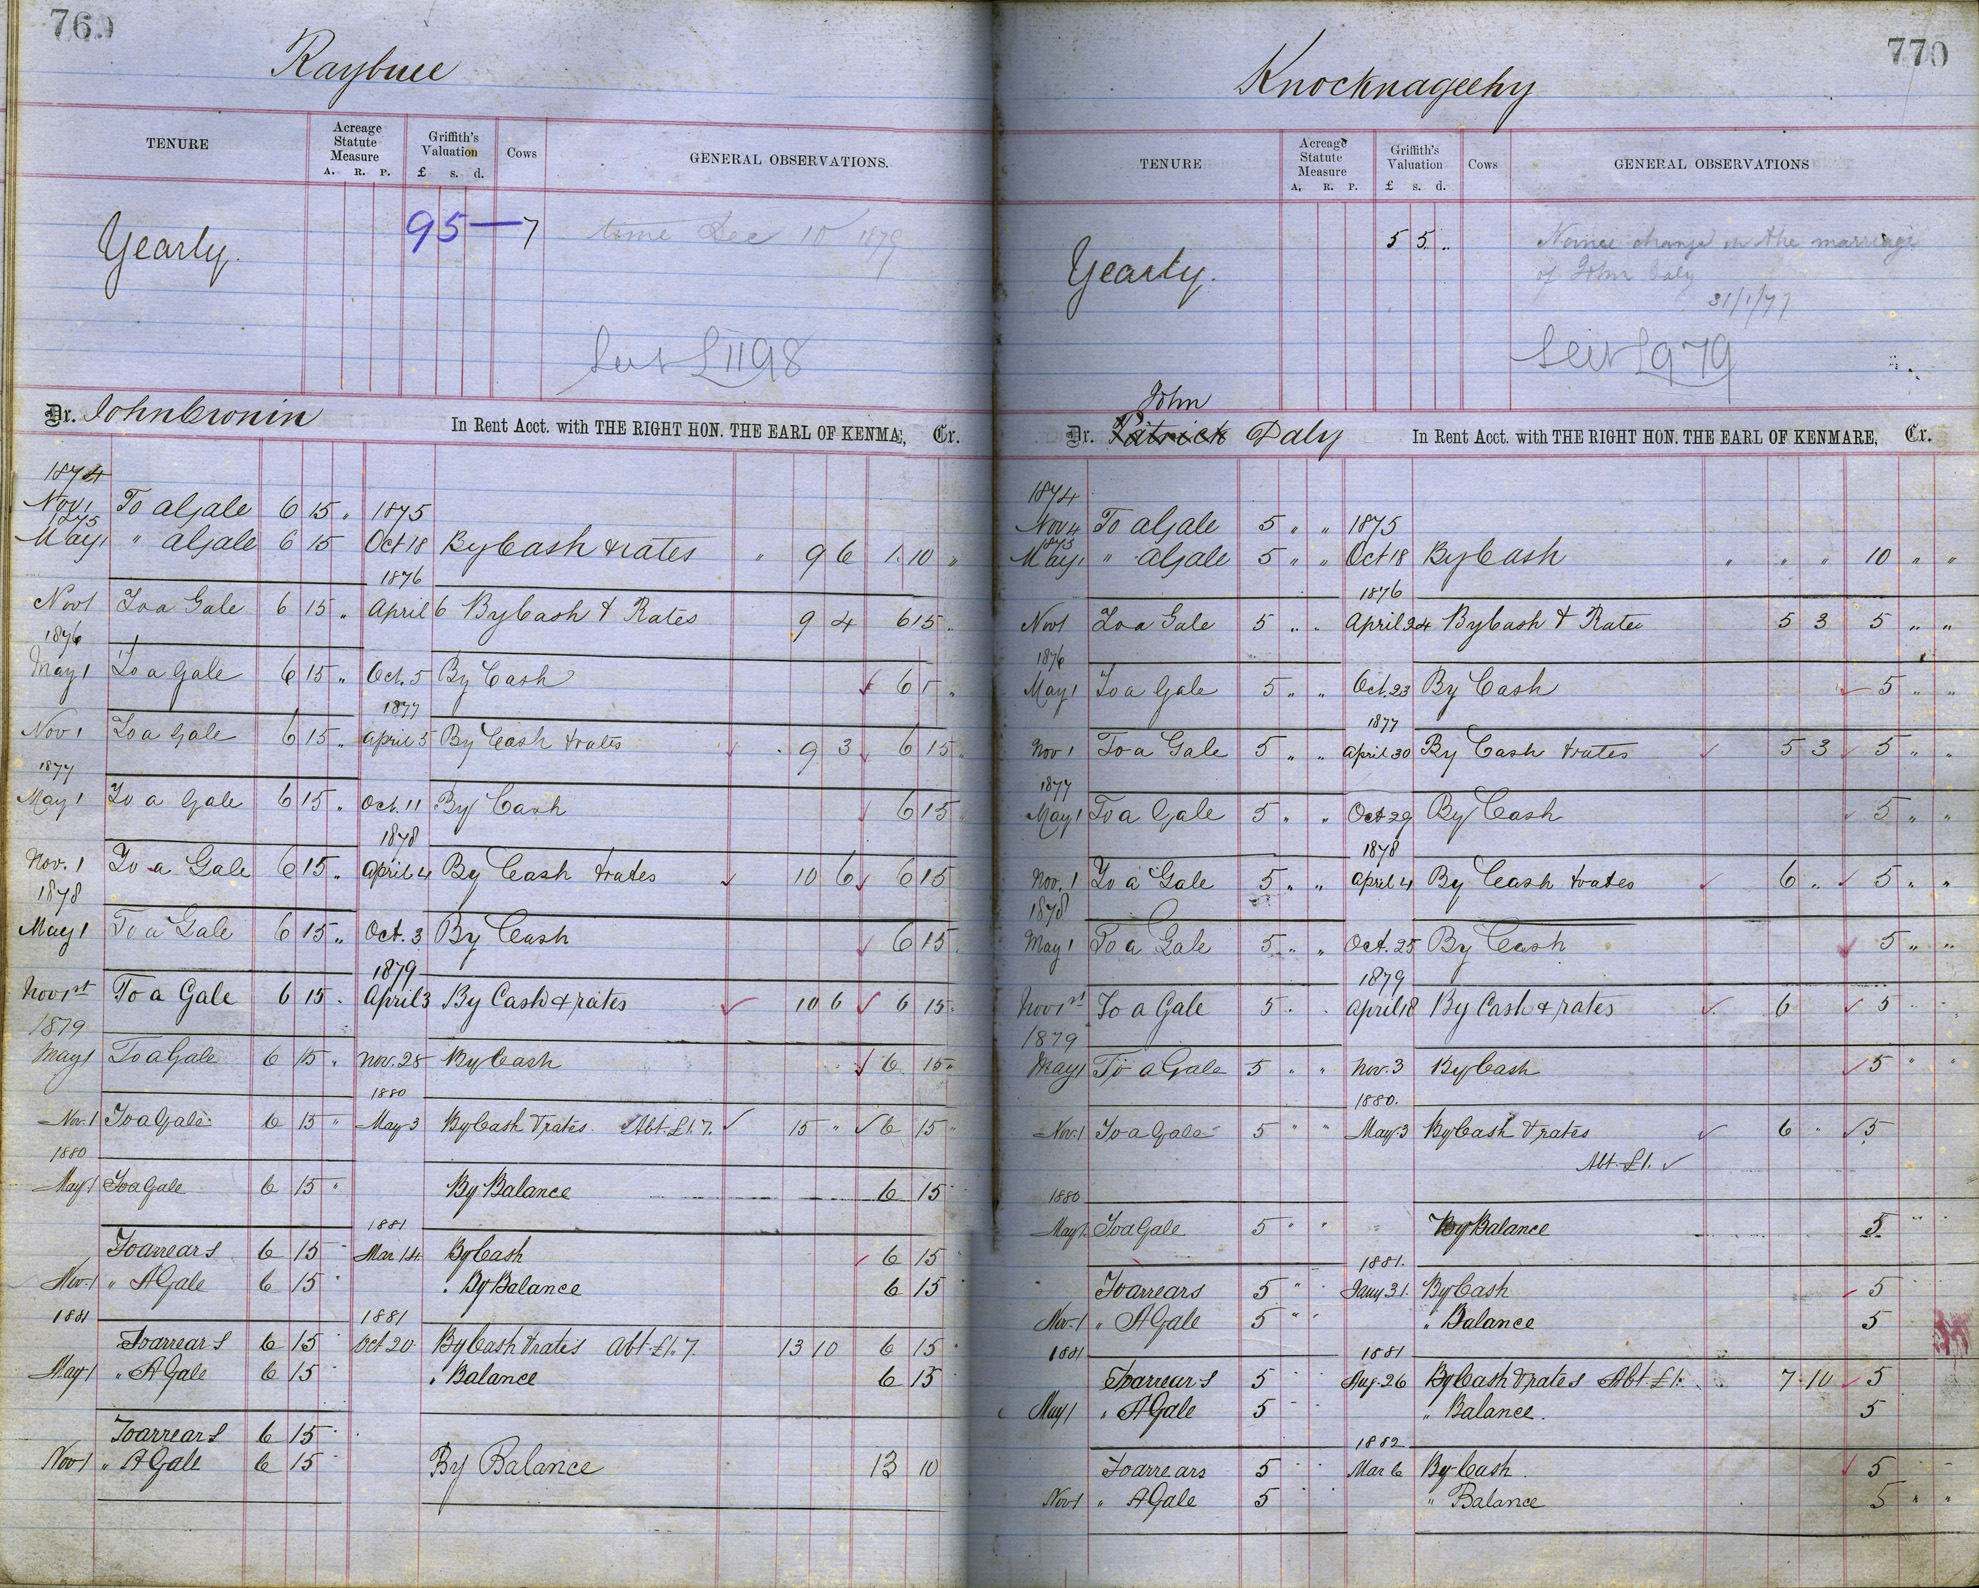 769
Raybuee
TENURE
Acreage Statute Measure
A. R. P.
Griffith's Valuation
£ s. d.
Cows
GENERAL OBSERVATIONS.
Yearly.
95 — 7
time Dec 10 1879
£1198
Dr. John Cronin In Rent Acct. with THE RIGHT HON. THE EARL OF KENMA, Cr.
1874
Nov 1 To a Gale 6 15 „ 1875
1875
May 1 „ a Gale 6 15 Oct 18 By Cash & rates „ 9 6 10 „
1876
Nov 1 To a Gale 6 15 „ April 6 By Cash & Rates 9 4 6 15 „
1876
May 1 To a Gale 6 15 „ Oct. 5 By Cash 6 15 „
1877
Nov 1 To a Gale 6 15 „ April 5 By Cash & rates 9 3 6 15 „
1877
May 1 To a Gale 6 15 „ Oct. 11 By Cash 6 15
1878
Nov. 1 To a Gale 6 15 „ April 4 By Cash & rates 10 6 6 15
1878
May 1 To a Gale 6 15 „ Oct. 3 By Cash 6 15
1879
Nov 1st To a Gale 6 15 . April 3 By Cash & rates 10 6 6 15
1879
May 1 To a Gale 6 15 „ Nov. 28 By Cash 6 15
1880
Nov. 1 To a Gale 6 15 „ May 3 By Cash & rates Abt. £1.7. 15 „ 6 15 „
1880
May 1 To a Gale 6 15 „ By Balance 6 15
1881
To arrears 6 15 Mar 14 By Cash 6 15
Nov. 1 „ A Gale 6 15 By Balance 6 15
1881 1881
To arrears 6 15 Oct 20 By Cash & rates Abt. £1.7 13 10 6 15
May 1 „ A Gale 6 15 „ Balance 6 15
To arrears 6 15
Nov 1 „ A Gale 6 15 By Balance 13 10
770
Knocknageehy
TENURE
Acreage Statute Measure
A. R. P.
Griffith's Valuation
£ s. d.
Cows
GENERAL OBSERVATIONS
Yearly.
5 5 „
Names change on the marriage
of John Daly
31/1/77
£979
John
Dr. Patrick Daly In Rent Acct. with THE RIGHT HON. THE EARL OF KENMARE, Cr.
1874
Nov 4 To a Gale 5 „ „ 1875
1875
May 1 „ a Gale 5 „ „ Oct 18 By Cash „ „ „ 10 „ „
1876
Nov 1 To a Gale 5 „ „ April 24 By Cash & Rates 5 3 5 „ „
1876
May 1 To a Gale 5 „ „ Oct. 23 By Cash 5 „ „
1877
Nov 1 To a Gale 5 „ „ April 30 By Cash & rates 5 3 5 „ „
1877
May 1 To a Gale 5 „ „ Oct 29 By Cash 5 „ „
1878
Nov. 1 To a Gale 5 „ „ April 4 By Cash & rates 6 „ 5 „ „
1878
May 1 To a Gale 5 „ „ Oct. 25 By Cash 5 „ „
1879
Nov 1st To a Gale 5 . . April 18 By Cash & rates 6 5
1879
May 1 To a Gale 5 „ „ Nov. 3 By Cash 5 „ „
1880.
Nov. 1 To a Gale 5 „ „ May 3 By Cash & rates 6 5
Abt. £1.
1880
May 1 To a Gale 5 „ „ By Balance 5 „ „
1881.
To arrears 5 „ Jany 31. By Cash 5
Nov. 1 „ A Gale 5 „ „ „ Balance 5
1881 1881
To arrears 5 Aug. 26 By Cash & rates Abt £1. 7 10 5
May 1 „ A Gale 5 „ Balance. 5
1882
To arrears 5 Mar 6 By Cash. 5
Nov 1 „ A Gale 5 „ Balance 5 „ „